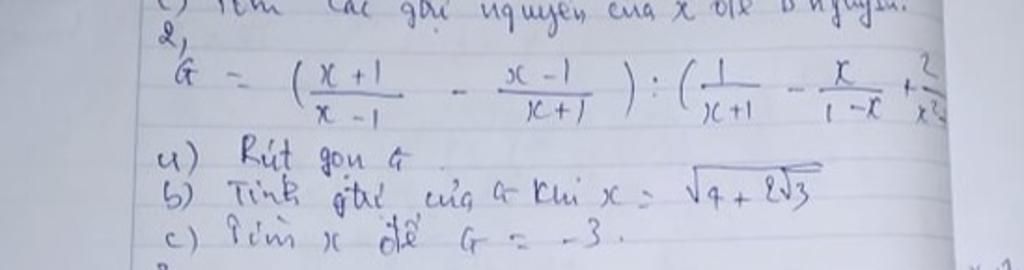 c) Tìm các giá nguyên của x để B nguyên.
2,
G = (\frac{x+1}{x-1} - \frac{x-1}{x+1}) : (\frac{1}{x+1} - \frac{x}{1-x} + \frac{2}{x^2
a) Rút gọn G
b) Tính gtrị của G khi x = \sqrt{4+2\sqrt{3}}
c) Tìm x để G = -3.